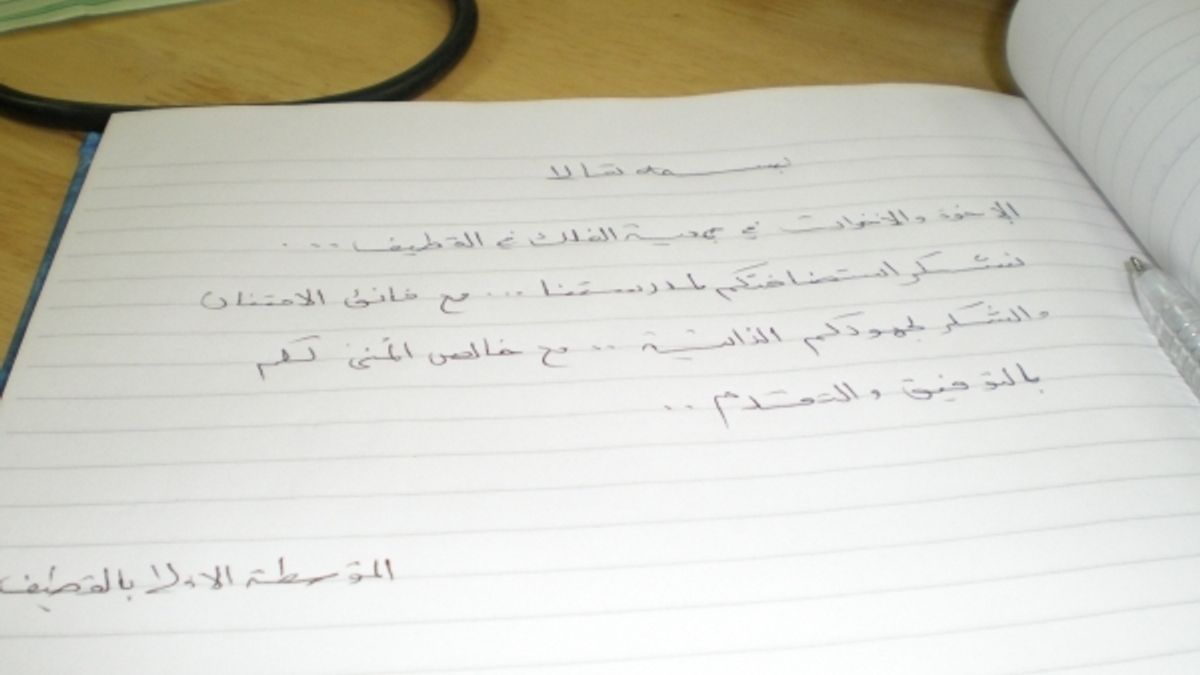 بسمه تعالى
الإخوة والاخوات في جمعية الفلك في القطيف ...
نشكر استضافتكم لمدرستنا ... مع فائق الامتنان
والشكر لجهودكم الذاتية .. مع خالص التمني لكم
بالتوفيق والتقدم ..
المتوسطة الاولى بالقطيف